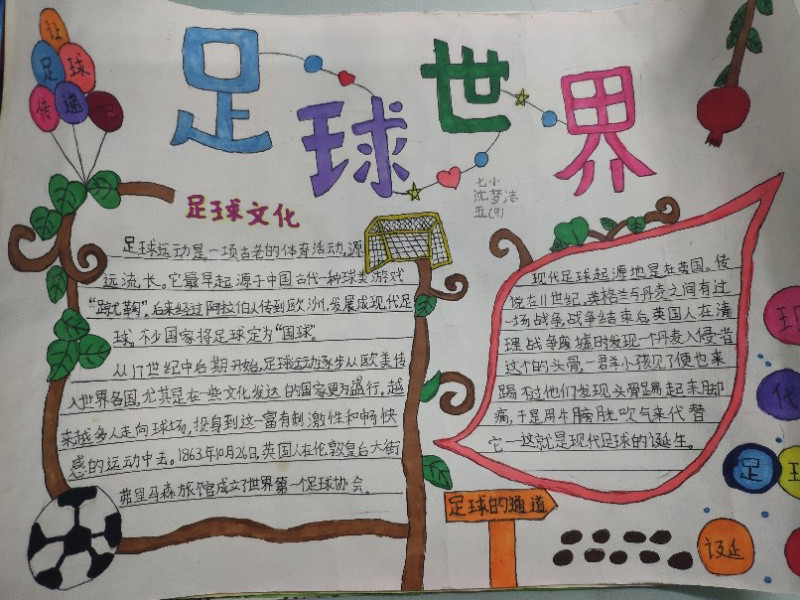 足球世界
让
足球
传递
吧
七小
沈梦洁
五(9)
足球文化
足球运动是一项古老的体育活动,源
远流长。它最早起源于中国古代一种球类游戏
“蹴鞠”,后来经过阿拉伯人传到欧洲,发展成现代足
球,不少国家将足球定为“国球”。
从17世纪中后期开始,足球运动逐步从欧美传
入世界各国,尤其是在一些文化发达的国家更为盛行。越
来越多人走向球场,投身到这一富有刺激性和畅快
感的运动中去。1863年10月26日,英国人在伦敦皇后大街
弗里马森旅馆成立了世界第一个足球协会。
现代足球起源地是在英国。传
说在11世纪,英格兰与丹麦之间有过
一场战争,战争结束后英国人在清
理战争废墟时发现一个丹麦入侵者
这个的头骨,一群小孩见了便也来
踢不过他们发现头骨踢起来脚
痛,于是用牛膀胱吹气来代替
它—这就是现代足球的诞生。
现
代
足
诞
足球的通道